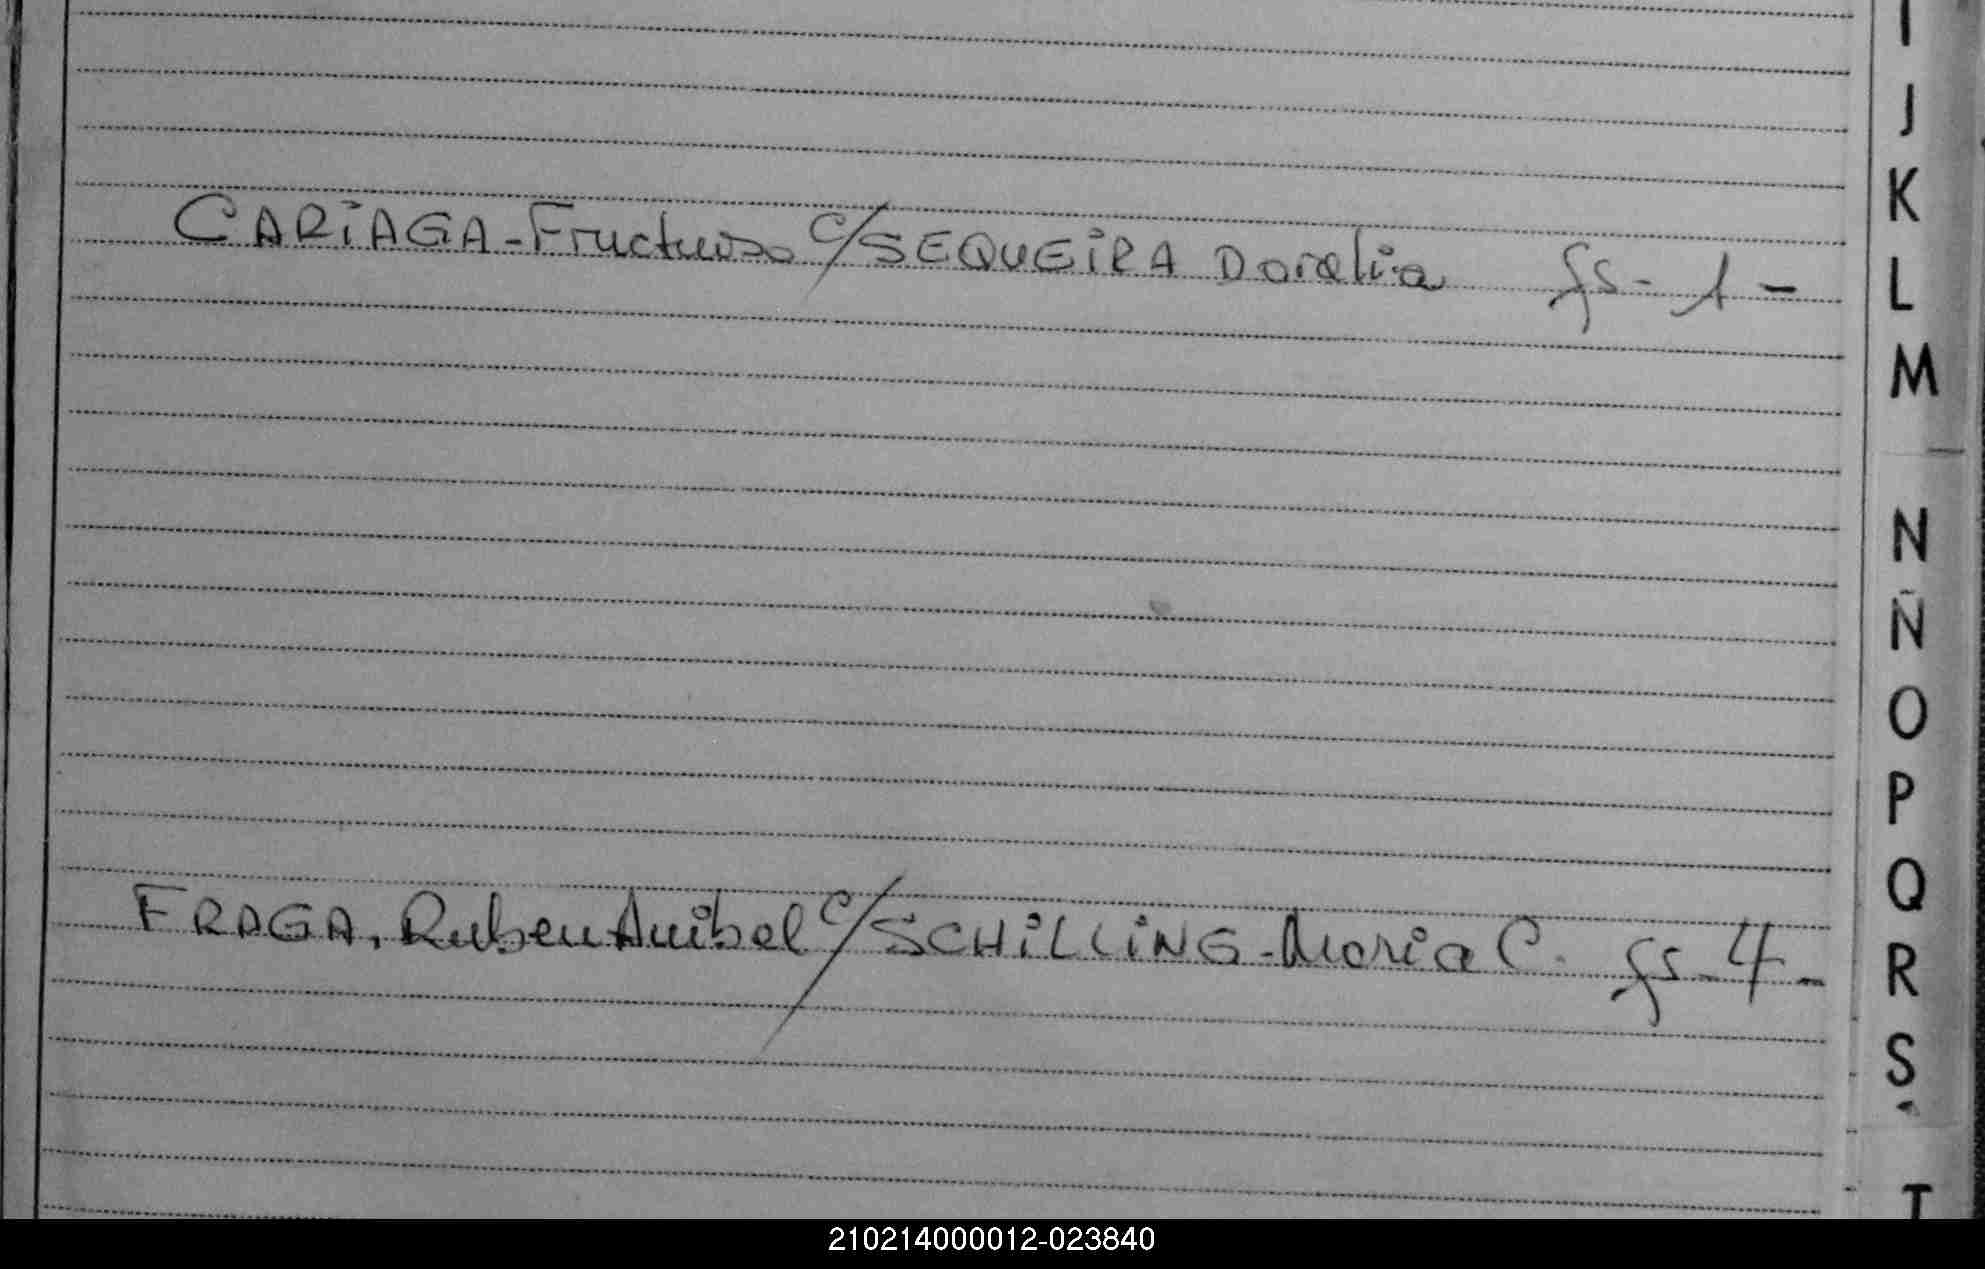 I
J
K
CARiAGA-Fructuoso c/SEQUEiRA Doralia fs- 1 -
L
M
N
Ñ
O
P
Q
FRAGA, Ruben Anibal c/SCHiLLiNG-Maria C. fs-4-
R
S
T
210214000012-023840